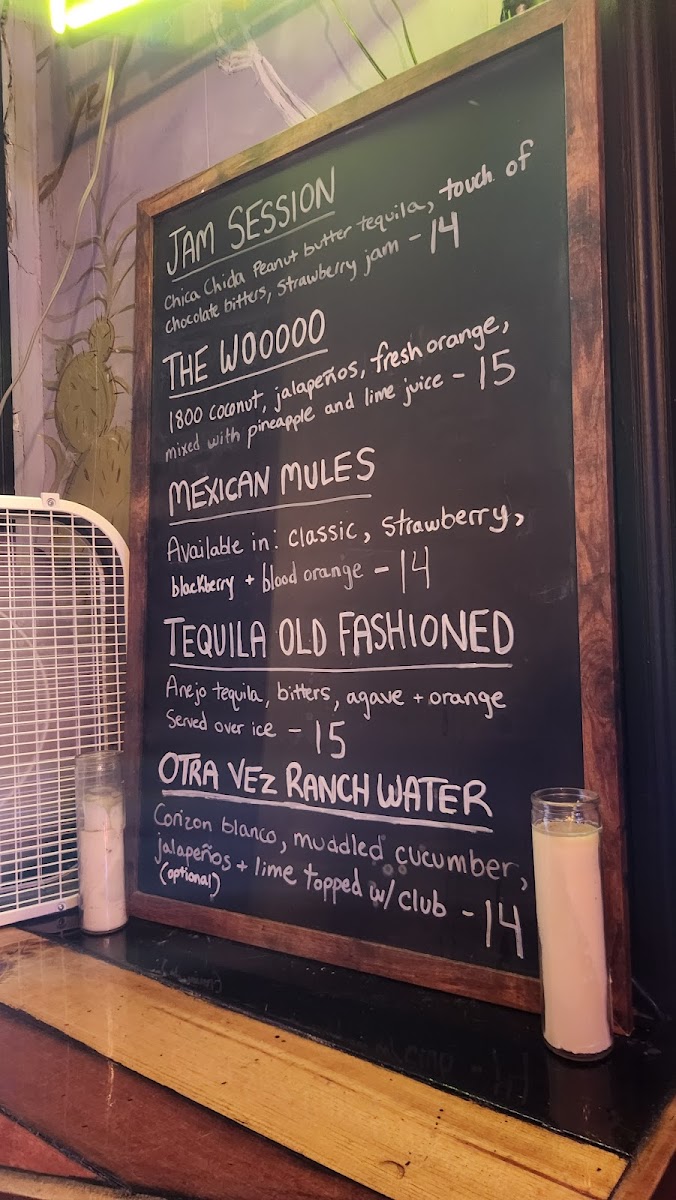 JAM SESSION
Chica Chida Peanut butter tequila, touch of
chocolate bitters, strawberry jam - 14
THE WOOOOO
1800 coconut, jalapeños, fresh orange,
mixed with pineapple and lime juice - 15
MEXICAN MULES
Available in: classic, strawberry,
blackberry + blood orange - 14
TEQUILA OLD FASHIONED
Anejo tequila, bitters, agave + orange
Served over ice - 15
OTRA VEZ RANCH WATER
Corizon blanco, muddled cucumber,
jalapeños + lime topped w/ club - 14
(optional)